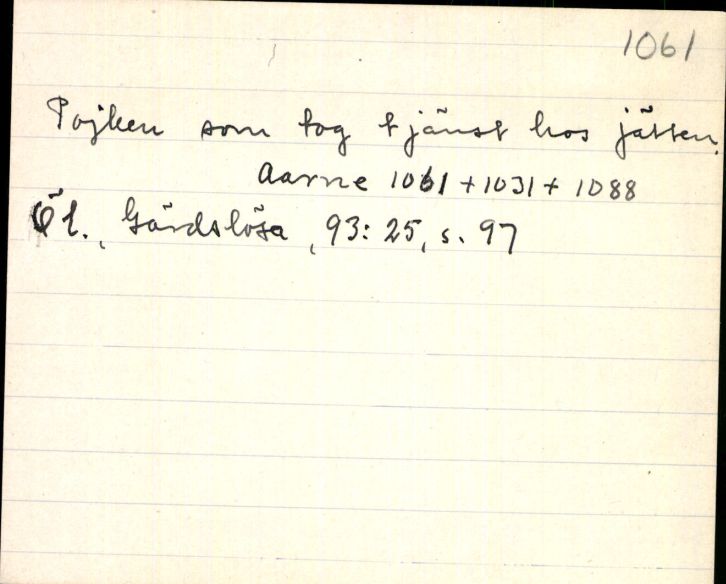 1061
Pojken som tog tjänst hos jätten.
Aarne 1061 + 1031 + 1088
Öl., Gärdslösa, 93:25, s. 97